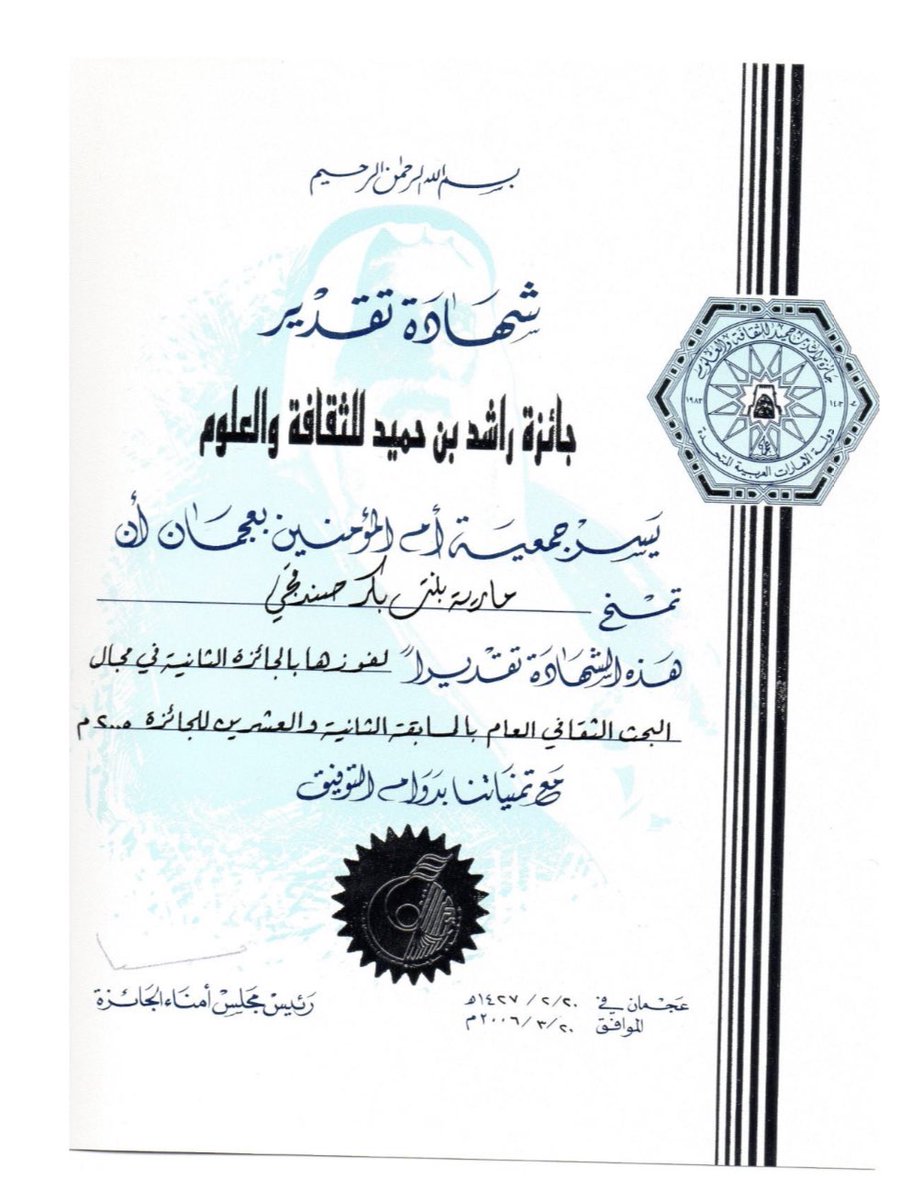 بسم الله الرحمن الرحيم
شهادة تقدير
جائزة راشد بن حميد للثقافة والعلوم
جائزة راشد بن حميد للثقافة والعلوم
١٩٨٣
١٤٠٣
دولة الامارات العربية المتحدة
يسر جمعية أم المؤمنين بعجمان أن
تمنح مارية بنت باكر
هذه الشهادة تقديراً لفوزها بالجائزة الثانية في مجال
البحث الثقافي العام بالمسابقة الثانية والعشرين للجائزة ٢٠٠٥م
مع تمنياتنا بدوام التوفيق
عجمان في ٢٠/٢/١٤٢٧هـ
الموافق ٢٠/٣/٢٠٠٦م
رئيس مجلس أمناء الجائزة